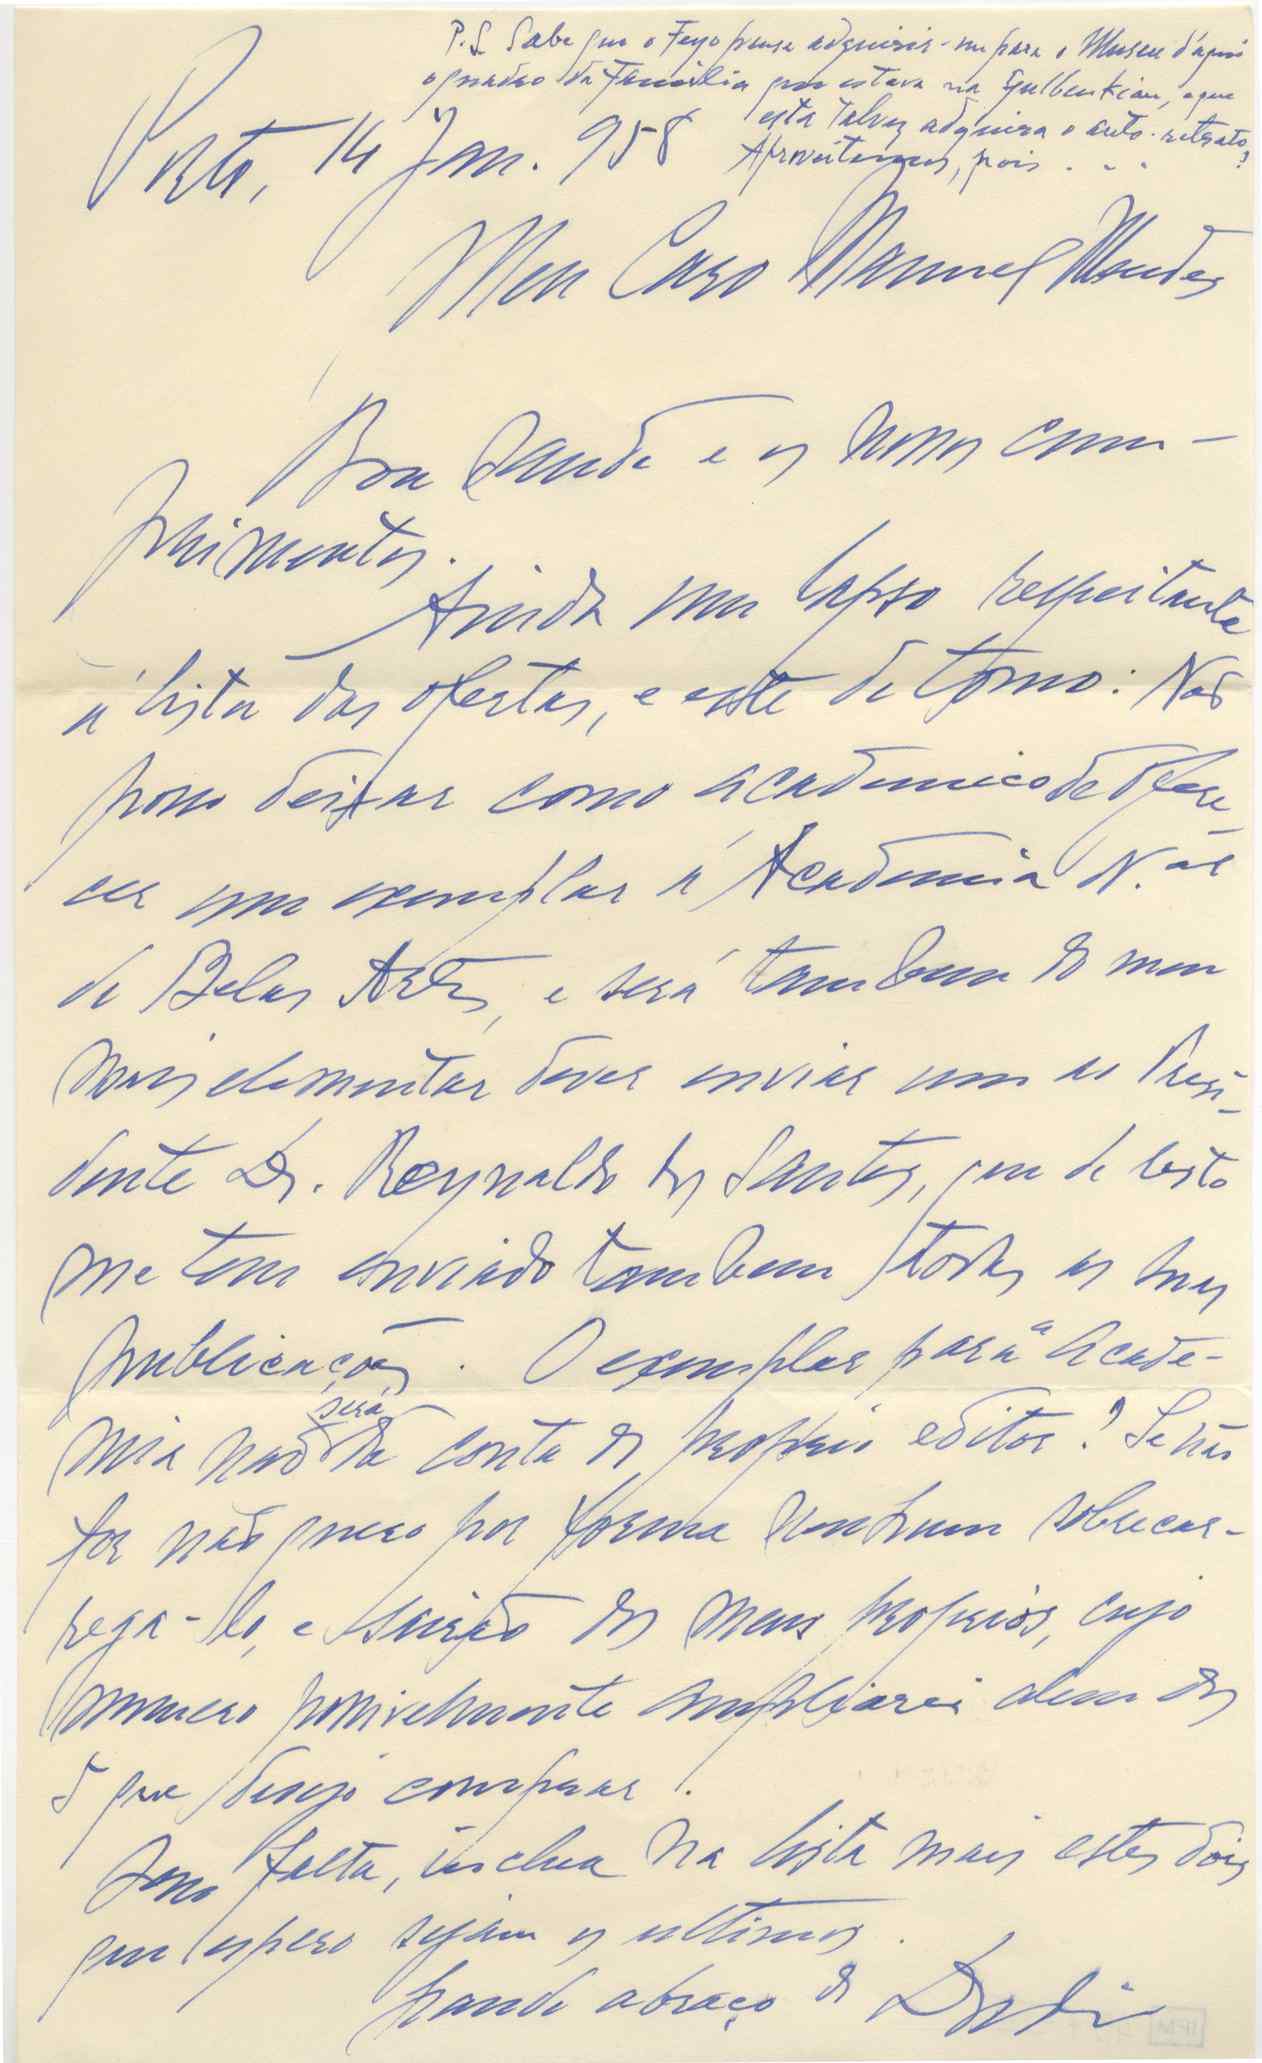 P.S. Sabe que o Feyo pensa adquirir-me para o Museu d'aqui
o quadro da Família que estava na Gulbenkian, e que
esta talvez adquira o auto-retrato?
Aproveitemos, pois . . .
Porto, 14 Jan. 958
Meu Caro Manuel Mendes
Boa Saude e os nossos cum-
primentos.
Ainda um lapso respeitante
á lista das ofertas, e este de tomo: Não
posso deixar como academico de ofere-
cer um exemplar á Academia N.al
de Belas Artes, e será tambem do meu
mais elementar dever enviar um ao Presi-
dente Dr. Reynaldo dos Santos, que de resto
me tem enviado tambem todas as suas
publicações. O exemplar para a Acade-
mia não será da conta do proprio editor? Se não
for não quero por forma nenhum sobrecar-
rega-lo, e sairão dos meus proprios, cujo
numero possivelmente ampliarei alem dos
5 que desejo comprar.
Sem falta, inclua na lista mais estes dois
que espero sejam os ultimos.
Grande abraço do Dordio